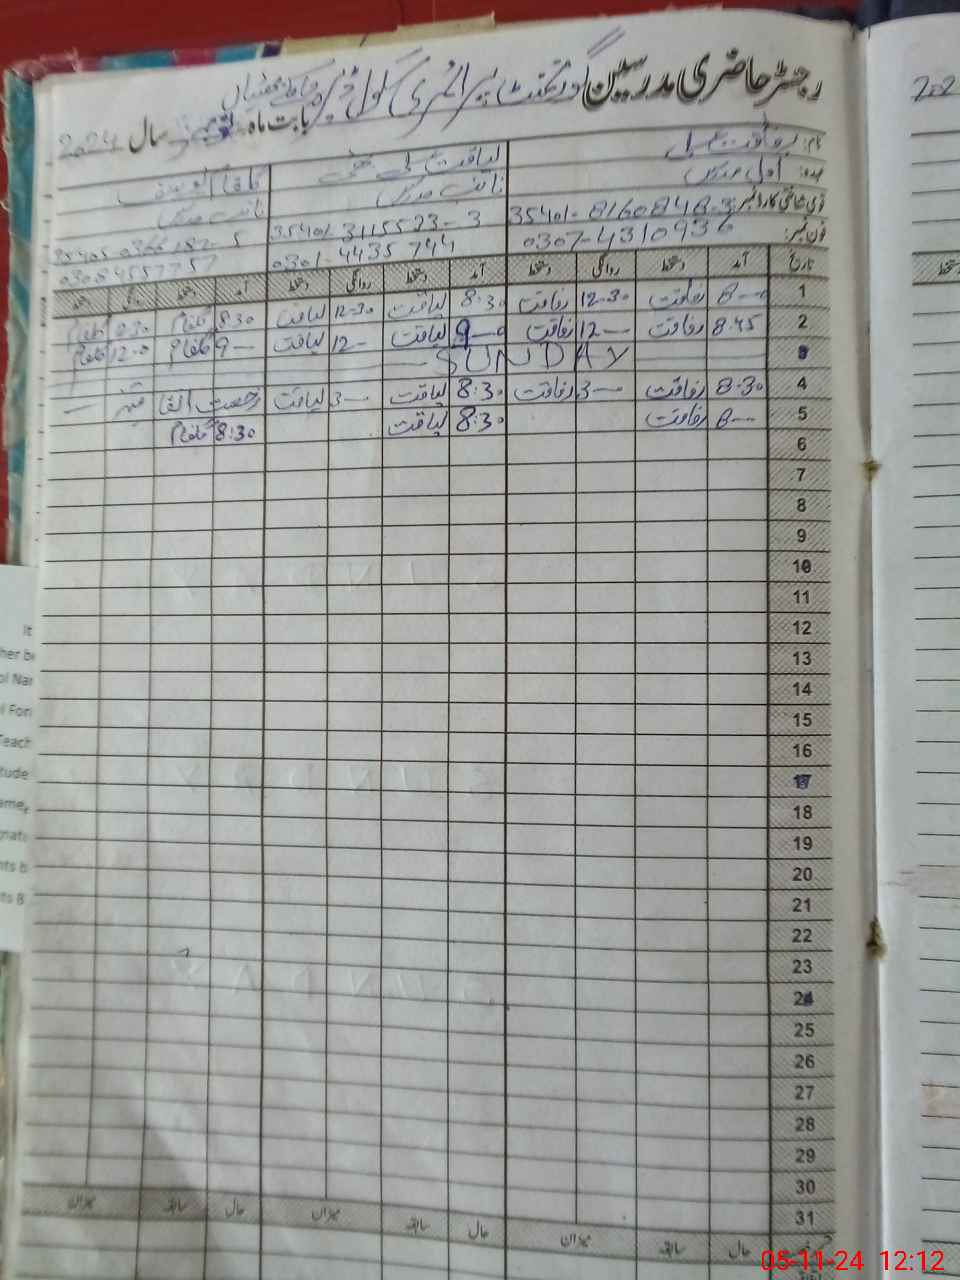 رجسٹر حاضری مدرسین گورنمنٹ پرائمری سکول
بابت ماہ نومبر سال 2024
نام: رفاقت علی لیاقت علی
عہدہ: اول مدرس نائب مدرس نائب مدرس
قومی شناختی کارڈ نمبر: 35401-8160848-3 35401-3115523-3
فون نمبر: 0307-4310936 0301-4435744 03084557757
تاریخ آمد دستخط روانگی دستخط آمد دستخط روانگی دستخط آمد دستخط روانگی دستخط
1 8-- رفاقت 12-30 رفاقت 8:30 لیاقت 12-30 لیاقت 8:30 گلفام 12:30 گلفام
2 8.45 رفاقت 12-- رفاقت 9-- لیاقت 12- لیاقت 9-- گلفام 12:0 گلفام
3 SUNDAY
4 8-30 رفاقت 3-- رفاقت 8:30 لیاقت 3-- لیاقت رخصت
5 8-- رفاقت 8:30 لیاقت 8:30 گلفام
6
7
8
9
10
11
12
13
14
15
16
17
18
19
20
21
22
23
24
25
26
27
28
29
30
31
حال سابقہ میزان حال سابقہ میزان حال سابقہ میزان
202
دستخط
It
her b
ol Nar
l For
Teach
tude
ame,
gnat
nts b
nts 8
05-11-24 12:12